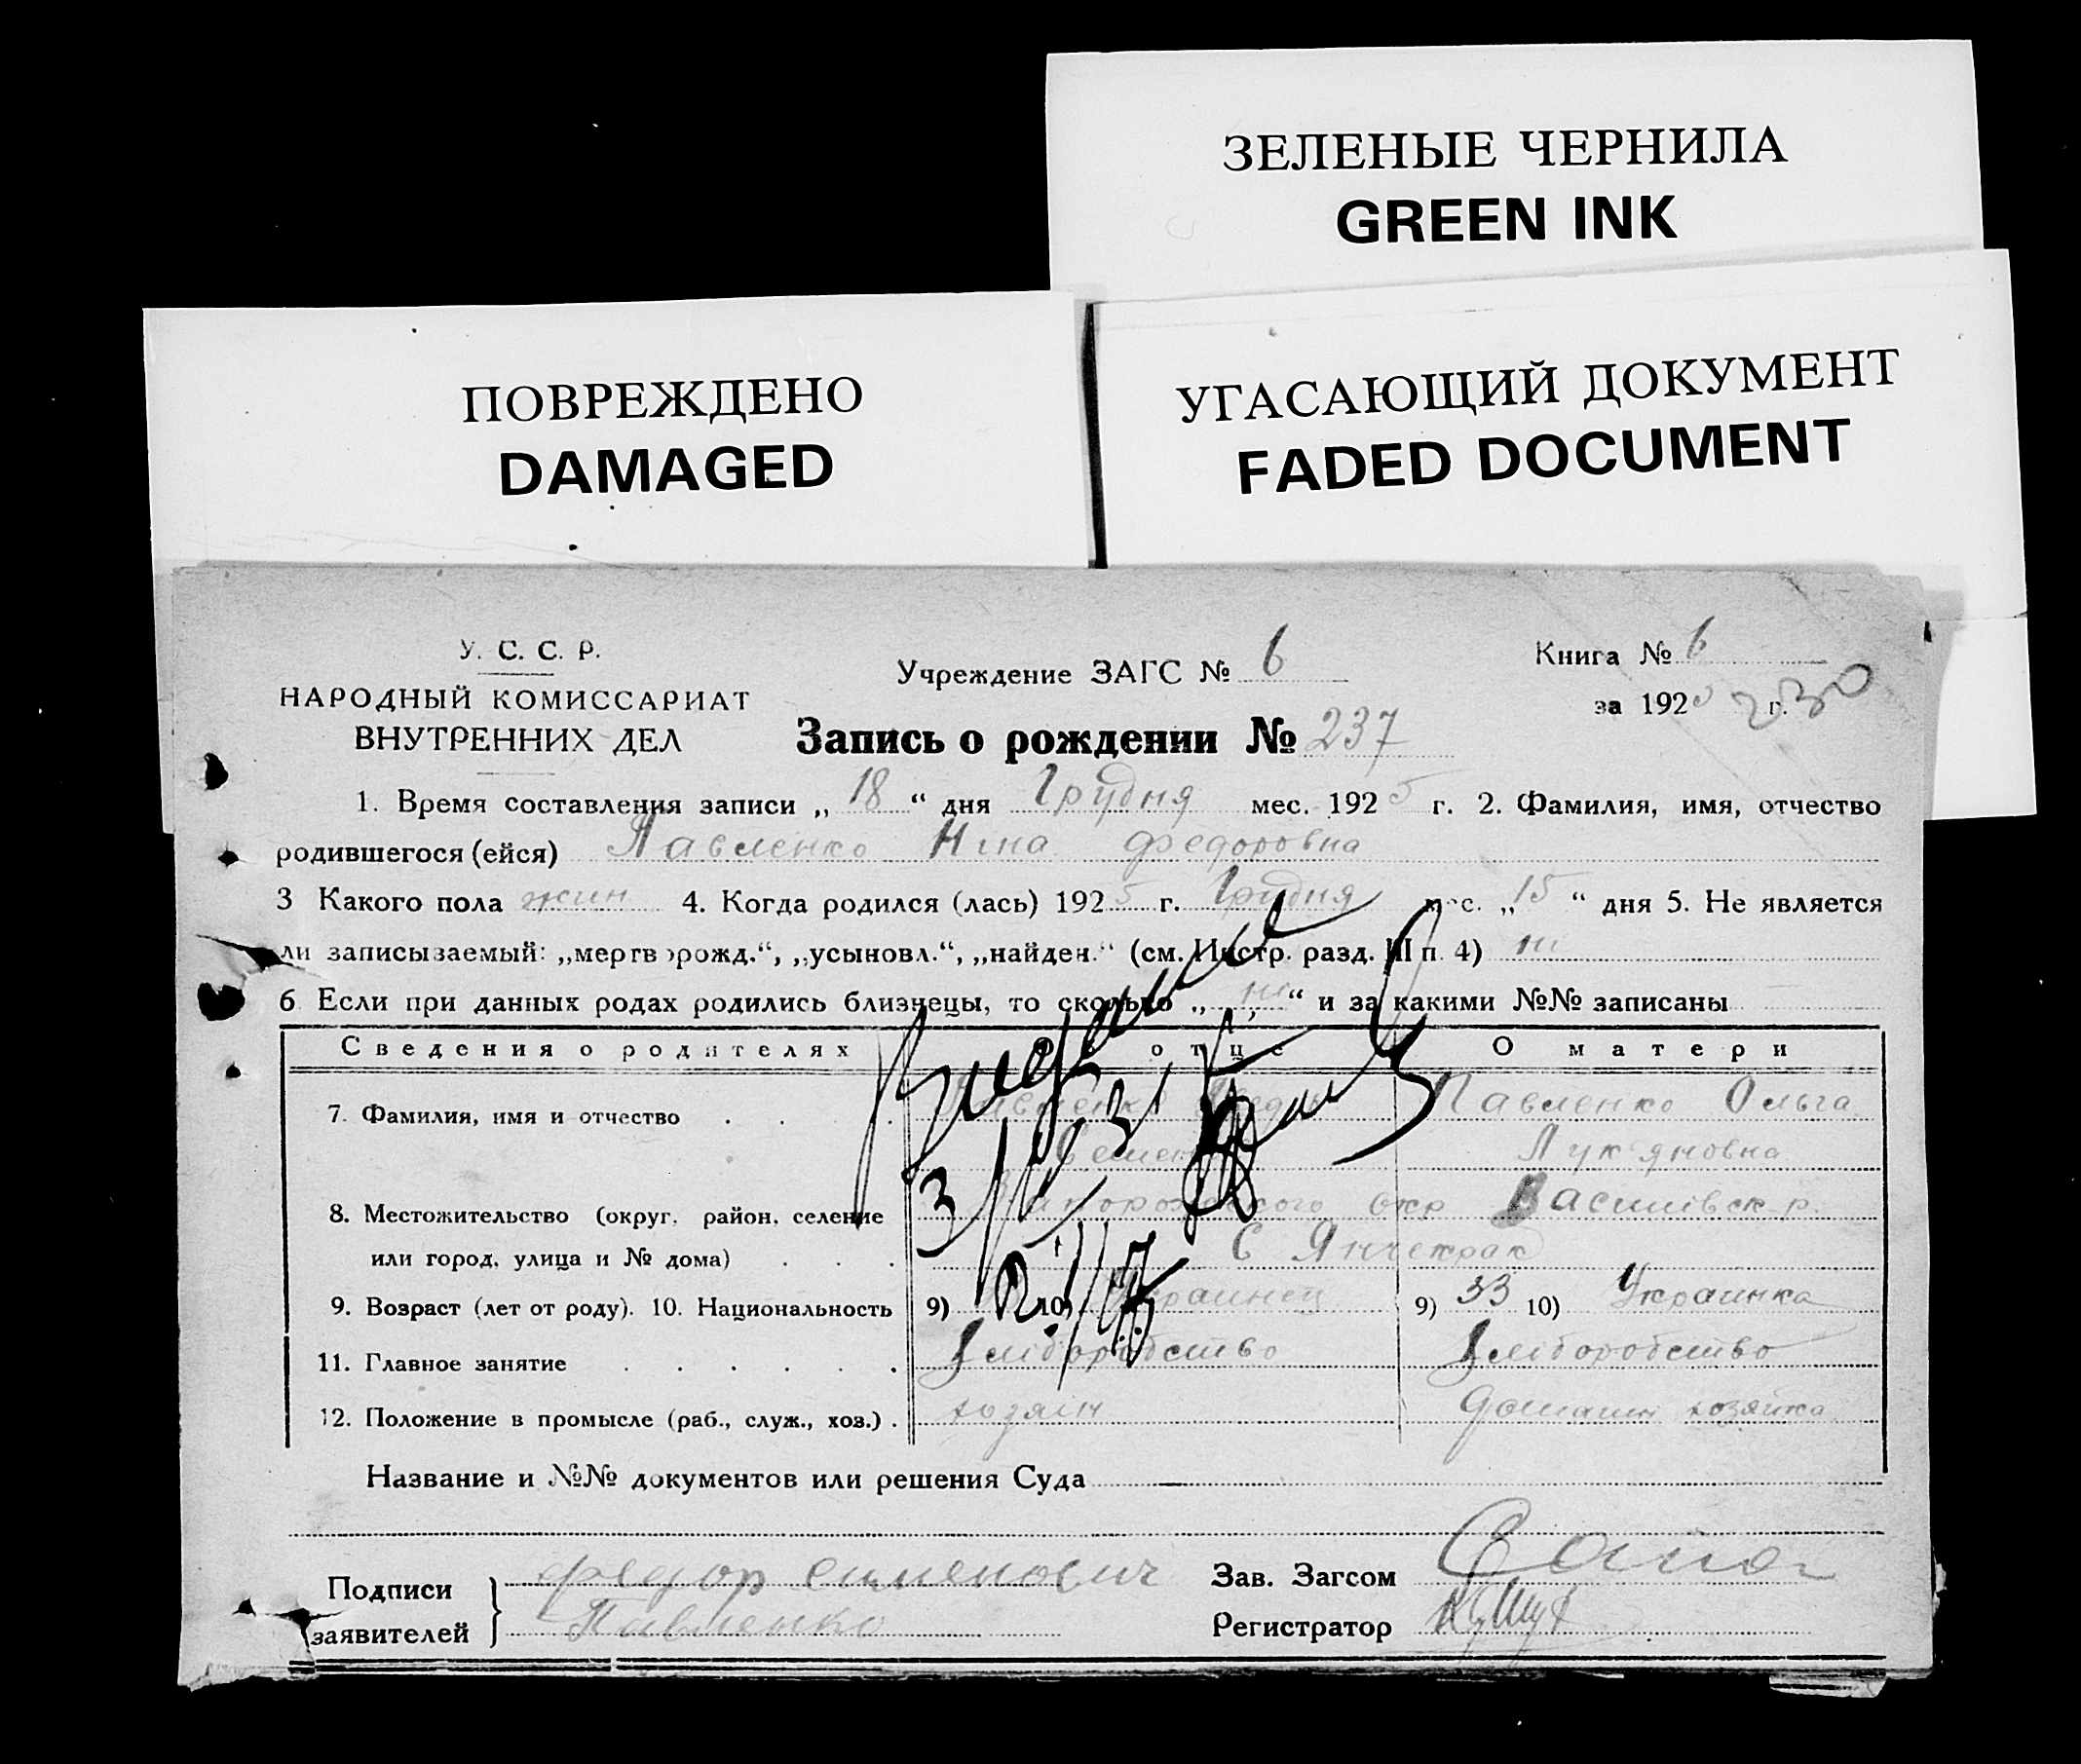 ЗЕЛЕНЫЕ ЧЕРНИЛА
GREEN INK
ПОВРЕЖДЕНО
DAMAGED
УГАСАЮЩИЙ ДОКУМЕНТ
FADED DOCUMENT
У. С. С. Р.
НАРОДНЫЙ КОМИССАРИАТ
ВНУТРЕННИХ ДЕЛ
Учреждение ЗАГС № 6
Книга № 6
за 192 г. 230
Запись о рождении № 237
1. Время составления записи „ 18 “ дня Грудня мес. 1925 г. 2. Фамилия, имя, отчество
родившегося (ейся) Павленко Нина Федоровна
3 Какого пола жин 4. Когда родился (лась) 1925 г. Грудня мес. „ 15 “ дня 5. Не является
ли записываемый: „мертворожд.“, „усыновл.“, „найден.“ (см. Инстр. разд. III п. 4) ні
6 Если при данных родах родились близнецы, то сколько „ ні “ и за какими №№ записаны
Сведения о родителях Об отце О матери
7. Фамилия, имя и отчество Павленко Павленко Ольга
Лук'яновна
8. Местожительство (округ, район, селение Запорожского окр Василівск р.
или город, улица и № дома) С Янчекрак
9. Возраст (лет от роду). 10. Национальность 9) 10) Украинец 9) 33 10) Украинка
11. Главное занятие Хліборобство Хліборобство
12. Положение в промысле (раб., служ., хоз.) хозяин домашн хозяйка
Название и №№ документов или решения Суда —
Подписи заявителей } Федор Семенович
Павленко
Зав. Загсом
Регистратор